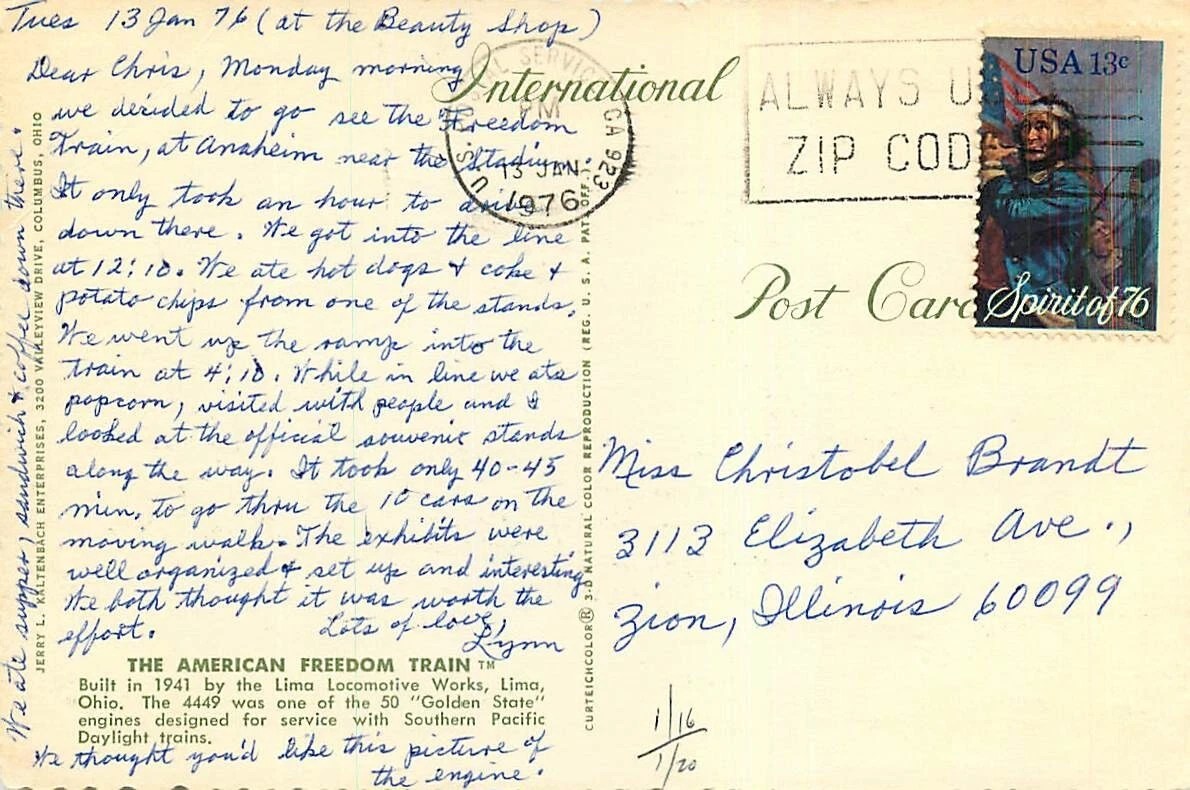 Tues 13 Jan 76 (at the Beauty Shop)
Dear Chris, Monday morning
we decided to go see the Freedom
Train, at Anaheim near the Stadium.
It only took an hour to drive
down there. We got into the line
at 12:10. We ate hot dogs & coke &
potato chips from one of the stands.
We went up the ramp into the
train at 4:10. While in line we ate
popcorn, visited with people and I
looked at the official souvenir stands
along the way. It took only 40-45
min. to go thru the 10 cars on the
moving walk. The exhibits were
well organized & set up and interesting
We both thought it was worth the
effort. Lots of love,
Lynn
THE AMERICAN FREEDOM TRAIN ™
Built in 1941 by the Lima Locomotive Works, Lima,
Ohio. The 4449 was one of the 50 "Golden State"
engines designed for service with Southern Pacific
Daylight trains.
We thought you'd like this picture of
the engine.
We ate supper, sandwich & coffee down there.
JERRY L. KALTENBACH ENTERPRISES, 3200 VALLEYVIEW DRIVE, COLUMBUS, OHIO
CURTEICHCOLOR® 3-D NATURAL COLOR REPRODUCTION (REG. U. S. A. PAT. OFF.)
International
Post Card
U.S. POSTAL SERVICE CA 923
PM
13 JAN
1976
ALWAYS US
ZIP CODE
USA 13c
Spirit of 76
Miss Christobel Brandt
3113 Elizabeth Ave.,
Zion, Illinois 60099
1/16
1/20